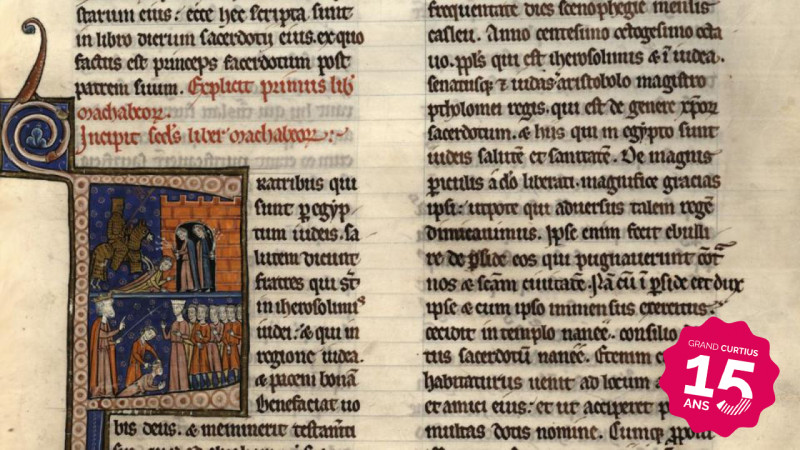 starum eius: ecce hec scripta sunt
in libro dierum sacerdotii eius. ex quo
factus est princeps sacerdotum post
patrem suum. Explicit primus lib'
machabeor.
Incipit scds liber machabeor:
ratribus qui
sunt p egyp
tum iudeis. sa
lutem dicunt
fratres qui st
in iherosolimis
iudei: & qui in
regione iudea.
& pacem bonā
Benefaciat uo
bis deus. & meminerit testamti
frequentate dies scenophegie mensis
casleu. Anno centesimo octogesimo octa
uo. ppls qui est iherosolimis & ī iudea.
senatusq; & iudas. aristobolo magistro
ptholomei regis. qui est de genere xpor
sacerdotum. & hiis qui in egypto sunt
iudeis salutē et sanitatē. De magnis
piculis a do liberati. magnifice gracias
ipsi: utpote qui aduersus talem regē
dimicauimus. Ipse enim fecit ebulli
re de pside eos qui pugnauerunt cōt
nos & scām ciuitatē. Nā cū ī pside eēt dux
ipse & cum ipso immensus exercitus:
cecidit in templo naneē. consilio
tus sacerdotū naneē. Etenim
habitaturus uenit ad locum
et amici eius: et ut aciperet
multas dotis nomine. Cumq;
GRAND CURTIUS
15
ANS